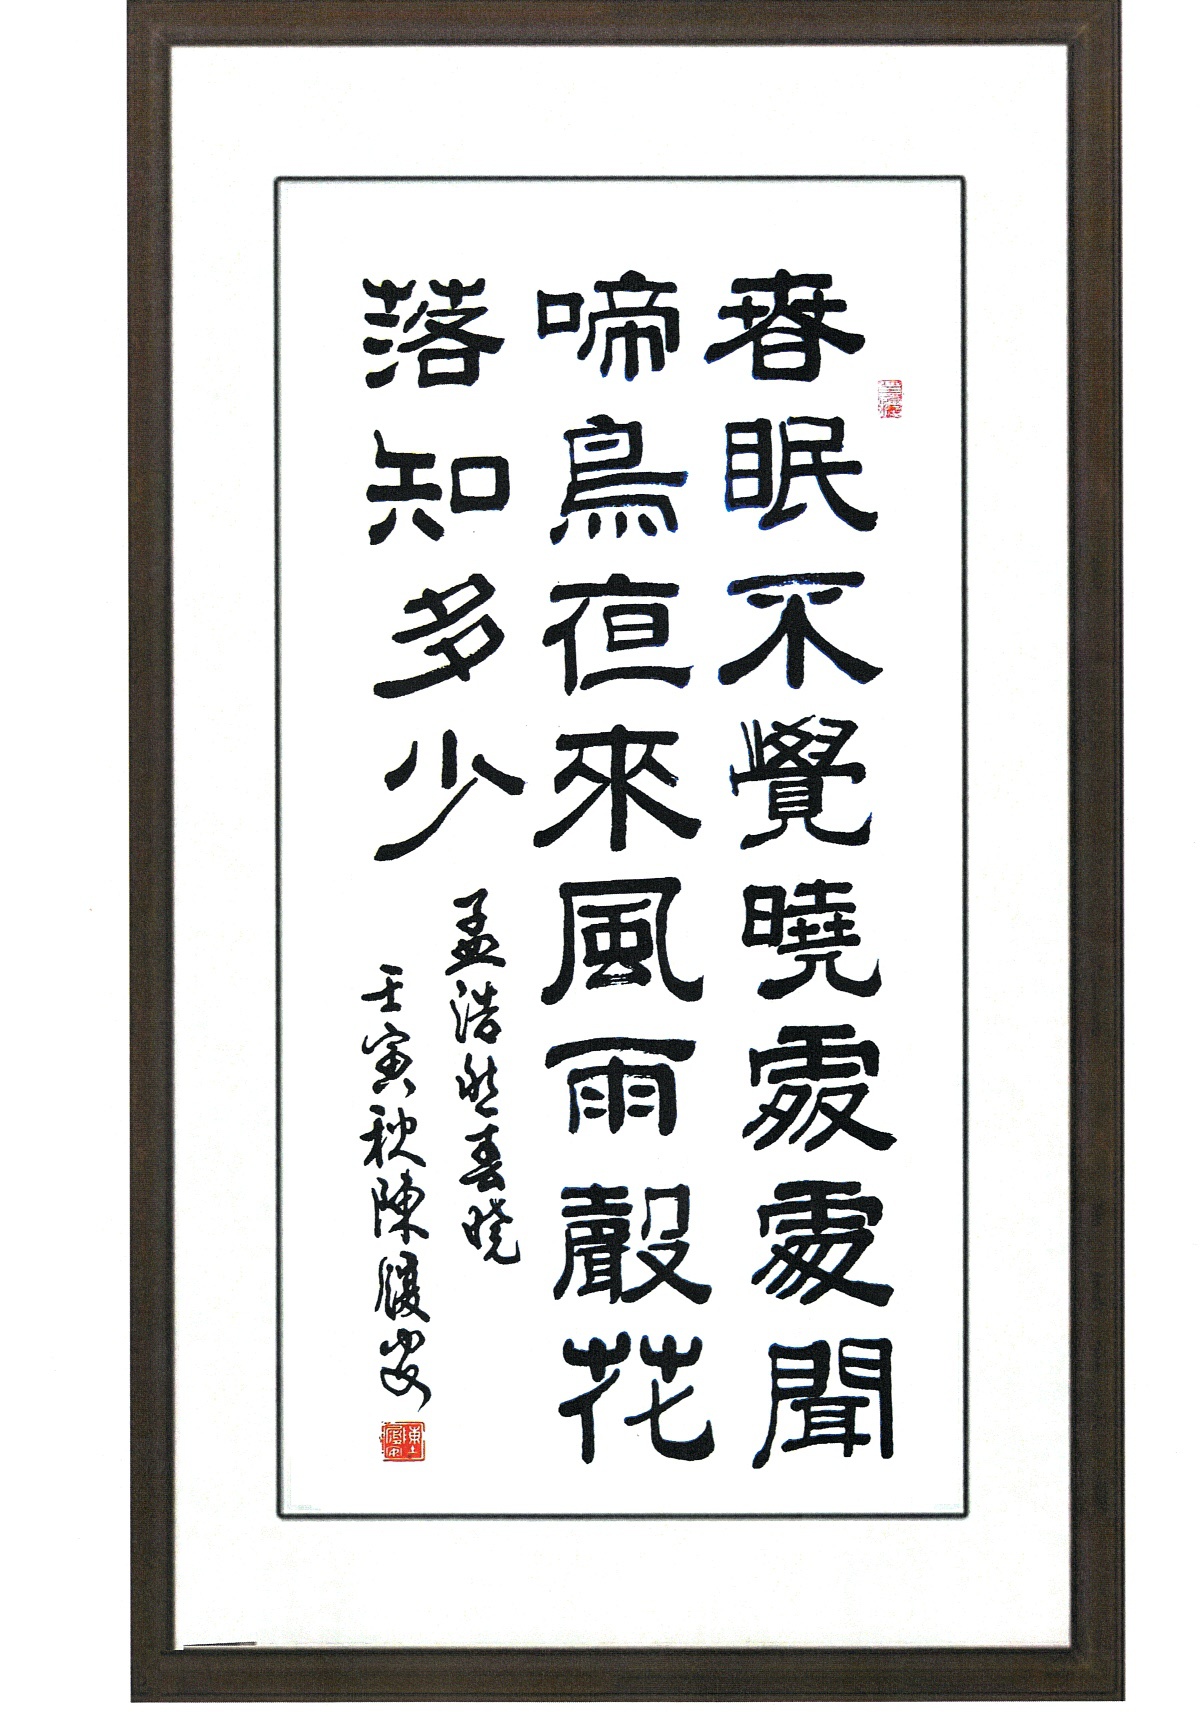 春眠不覺曉處處聞
啼鳥夜來風雨聲花
落知多少
孟浩然春曉
壬寅秋陳履安